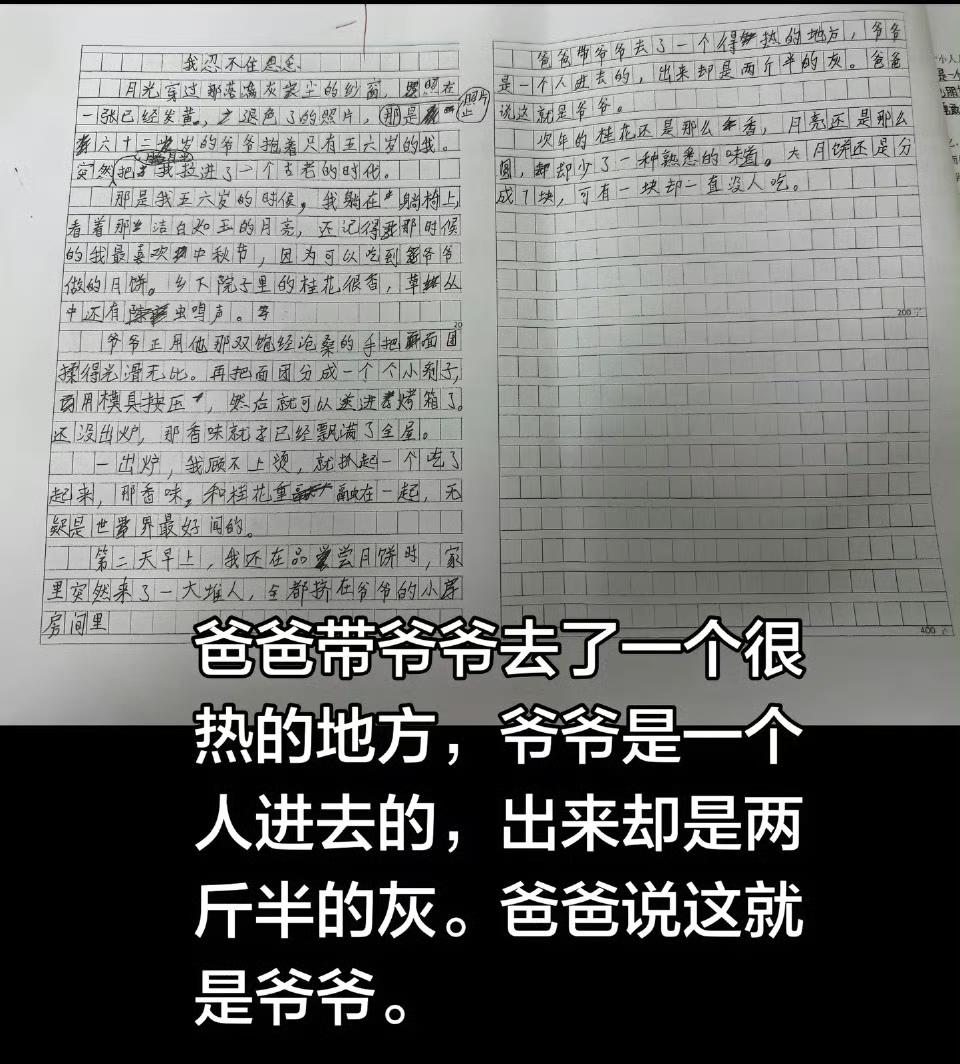 我忍不住思念
月光穿过那落满灰尘的纱窗，照在
一张已经发黄，褪色了的照片，那是
照片上
六十二岁的爷爷抱着只有五六岁的我。
突然把我拉进了一个古老的时代。
那是我五六岁的时候，我躺在躺椅上，
看着那洁白如玉的月亮，还记得那时候
的我最喜欢中秋节，因为可以吃到爷爷
做的月饼。乡下院子里的桂花很香，草丛
中还有虫鸣声。
20
爷爷正用他那双饱经沧桑的手把面团
揉得光滑无比。再把面团分成一个个小剂子，
用模具按压，然后就可以送进烤箱了。
还没出炉，那香味就已经飘满了全屋。
一出炉，我顾不上烫，就扒起一个吃了
起来，那香味，和桂花融在一起，无
疑是世界最好闻的。
第二天早上，我还在品尝月饼时，家
里突然来了一大堆人，全都挤在爷爷的小
房间里
爸爸带爷爷去了一个得热的地方，爷爷
是一个人进去的，出来却是两斤半的灰。爸爸
说这就是爷爷。
次年的桂花还是那么香，月亮还是那么
圆，却少了一种熟悉的味道。大月饼还是分
成7块，可有一块却一直没人吃。
200
400
爸爸带爷爷去了一个很
热的地方，爷爷是一个
人进去的，出来却是两
斤半的灰。爸爸说这就
是爷爷。